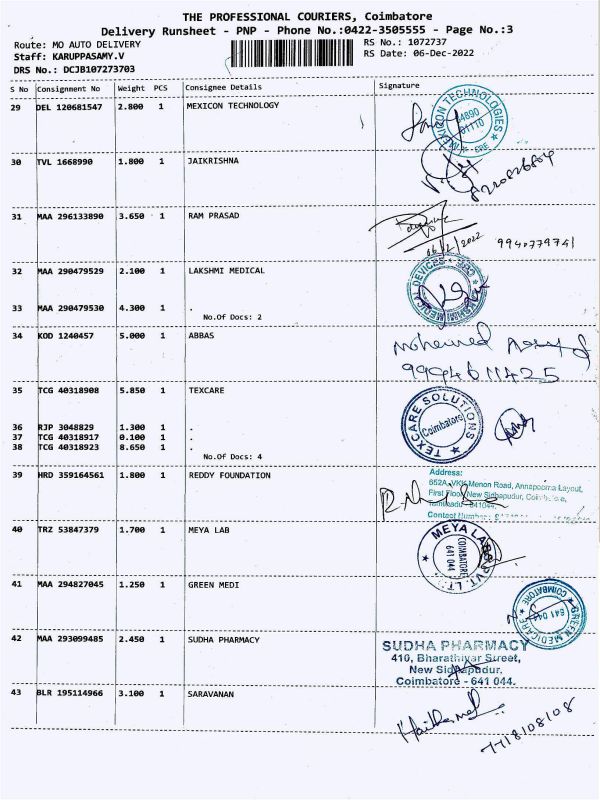 THE PROFESSIONAL COURIERS, Coimbatore
Delivery Runsheet - PNP - Phone No.:0422-3505555 - Page No.:3
Route: MO AUTO DELIVERY
RS No.: 1072737
Staff: KARUPPASAMY.V
RS Date: 06-Dec-2022
DRS No.: DCJB107273703
S No Consignment No Weight PCS Consignee Details Signature
29 DEL 120681547 2.800 1 MEXICON TECHNOLOGY
MEXICON TECHNOLOGIES
30 TVL 1668990 1.800 1 JAIKRISHNA
31 MAA 296133890 3.650 1 RAM PRASAD
9940779741
32 MAA 290479529 2.100 1 LAKSHMI MEDICAL
LAKSHMI MEDICAL DEVICES * CBE *
33 MAA 290479530 4.300 1 .
No.Of Docs: 2
34 KOD 1240457 5.000 1 ABBAS
Mohamed
9994611425
35 TCG 40318908 5.850 1 TEXCARE
TEXCARE SOLUTIONS
Coimbatore
36 RJP 3048829 1.300 1 .
37 TCG 40318917 0.100 1 .
38 TCG 40318923 8.650 1 .
No.Of Docs: 4
39 HRD 359164561 1.800 1 REDDY FOUNDATION
Address:
652A, VKK Menon Road, Annapoorna Layout,
First Floor, New Sidhapudur, Coimbatore,
Tamilnadu - 641044.
Contact Number:
40 TRZ 53847379 1.700 1 MEYA LAB
MEYA LABS PVT. LTD.
COIMBATORE
641 044
41 MAA 294827045 1.250 1 GREEN MEDI
GREEN MEDICARE * COIMBATORE *
641 044
42 MAA 293099485 2.450 1 SUDHA PHARMACY
SUDHA PHARMACY
410, Bharathiyar Street,
New Sidhapudur.
Coimbatore - 641 044.
43 BLR 195114966 3.100 1 SARAVANAN
7718108108